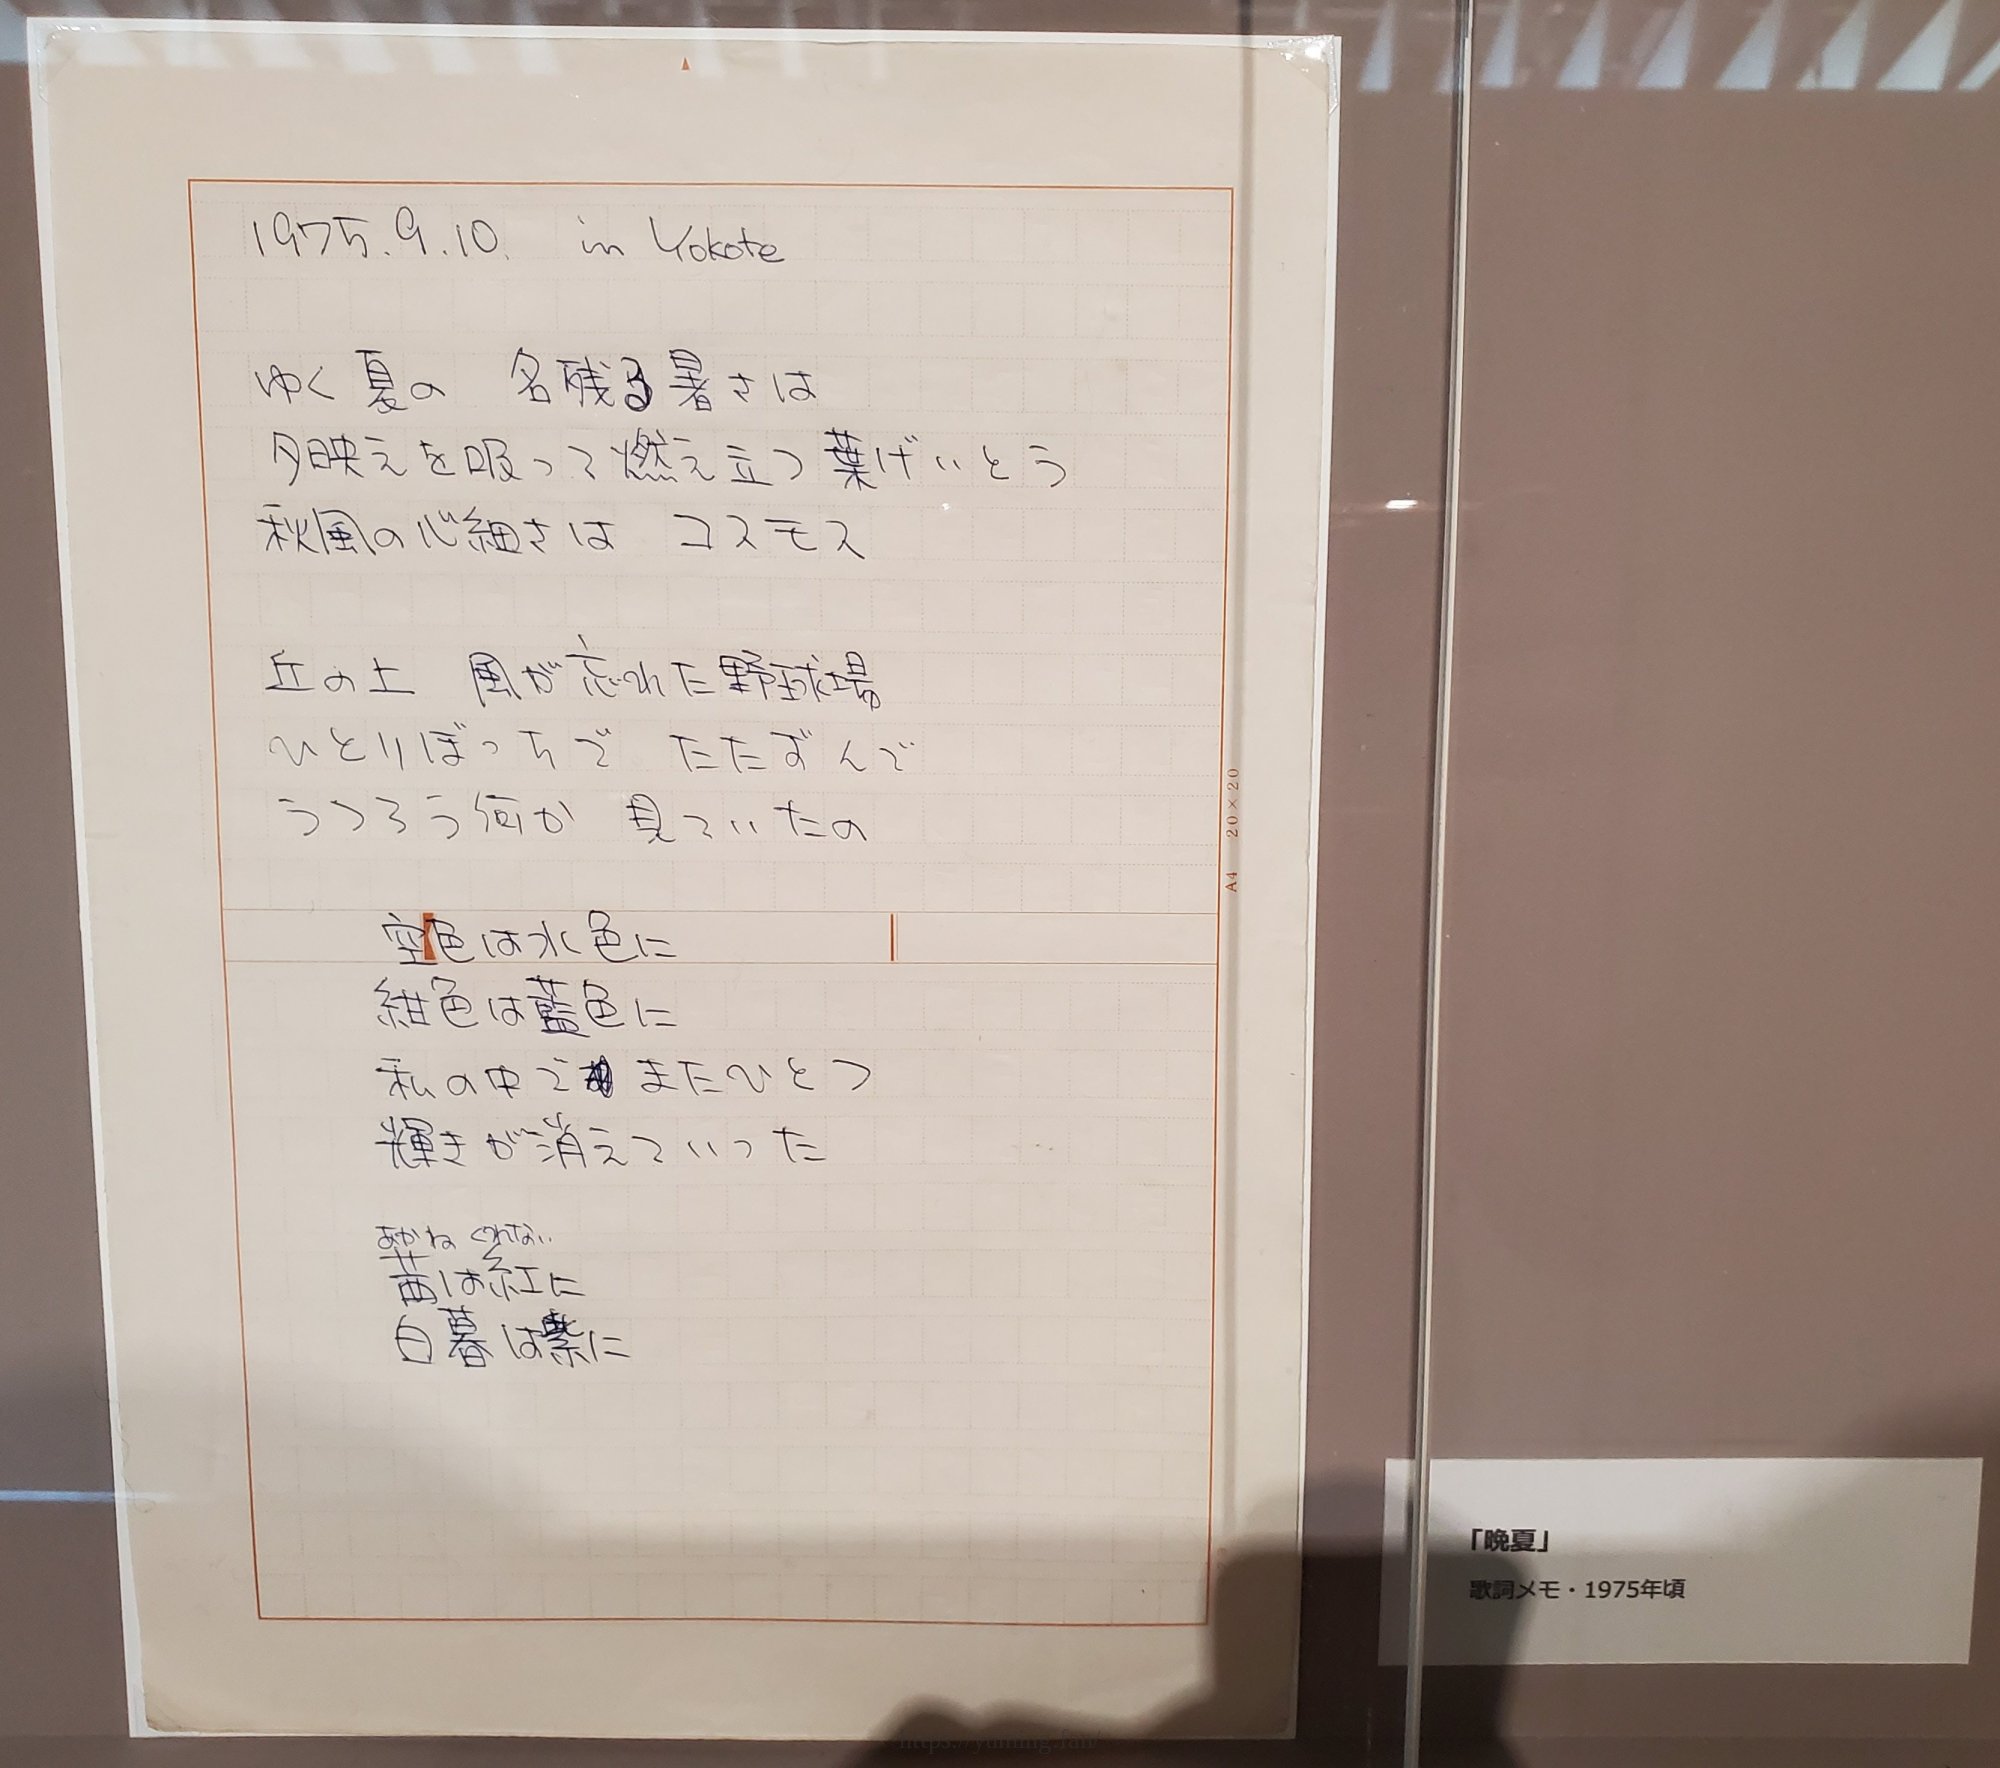 1975.9.10. in Yokote
ゆく夏の 名残る暑さは
夕映えを吸って燃え立つ葉げいとう
秋風の心細さは コスモス
丘の上 風が忘れた野球場
ひとりぼっちで たたずんで
うつろう何か 見ていたの
空色は水色に
紺色は藍色に
私の中で またひとつ
輝きが消えていった
あかね くれない
茜は紅に
白暮は紫に
A4 20×20
「晩夏」
歌詞メモ・1975年頃
https://yuming.fan/